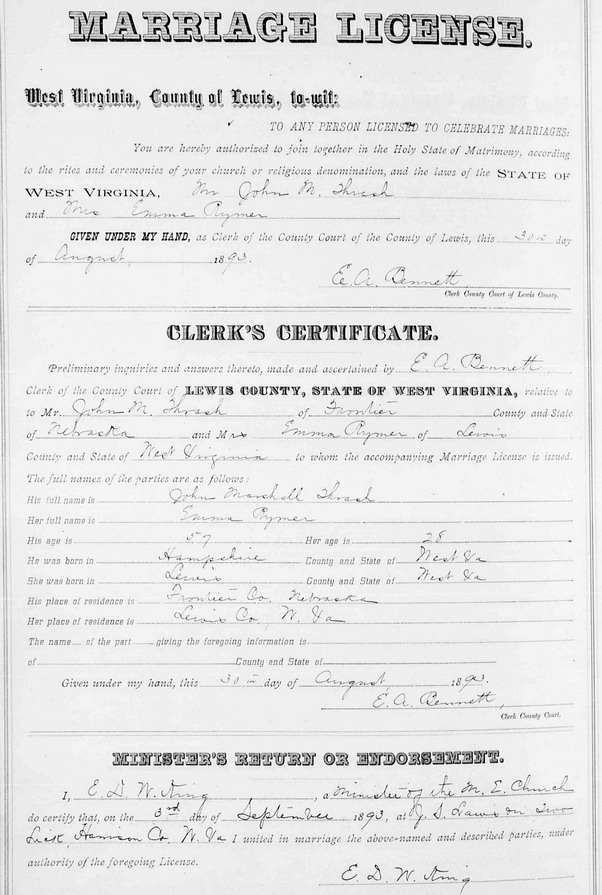 MARRIAGE LICENSE.
West Virginia, County of Lewis, to-wit:
TO ANY PERSON LICENSED TO CELEBRATE MARRIAGES:
You are hereby authorized to join together in the Holy State of Matrimony, according
to the rites and ceremonies of your church or religious denomination, and the laws of the STATE OF
WEST VIRGINIA, Mr John M. Thrash
and Mrs Emma Rymer
GIVEN UNDER MY HAND, as Clerk of the County Court of the County of Lewis, this 30th day
of August, 1893.
E. A. Bennett,
Clerk County Court of Lewis County.
CLERK'S CERTIFICATE.
Preliminary inquiries and answers thereto, made and ascertained by E. A. Bennett,
Clerk of the County Court of LEWIS COUNTY, STATE OF WEST VIRGINIA, relative to
to Mr. John M. Thrash of Frontier County and State
of Nebraska and Mrs Emma Rymer of Lewis
County and State of West Virginia to whom the accompanying Marriage License is issued.
The full names of the parties are as follows:
His full name is John Marshall Thrash
Her full name is Emma Rymer
His age is 57 Her age is 28
He was born in Hampshire County and State of West Va
She was born in Lewis County and State of West Va
His place of residence is Frontier Co. Nebraska
Her place of residence is Lewis Co, W. Va
The name of the part giving the foregoing information is
of County and State of
Given under my hand, this 30th day of August, 1893.
E. A. Bennett,
Clerk County Court.
MINISTER'S RETURN OR ENDORSEMENT.
I, E. D. W. King, a Minister of the M. E. Church
do certify that, on the 3rd day of September 1893, at J. S. on Two
Lick, Harrison Co, W. Va I united in marriage the above-named and described parties, under
authority of the foregoing License.
E. D. W. King